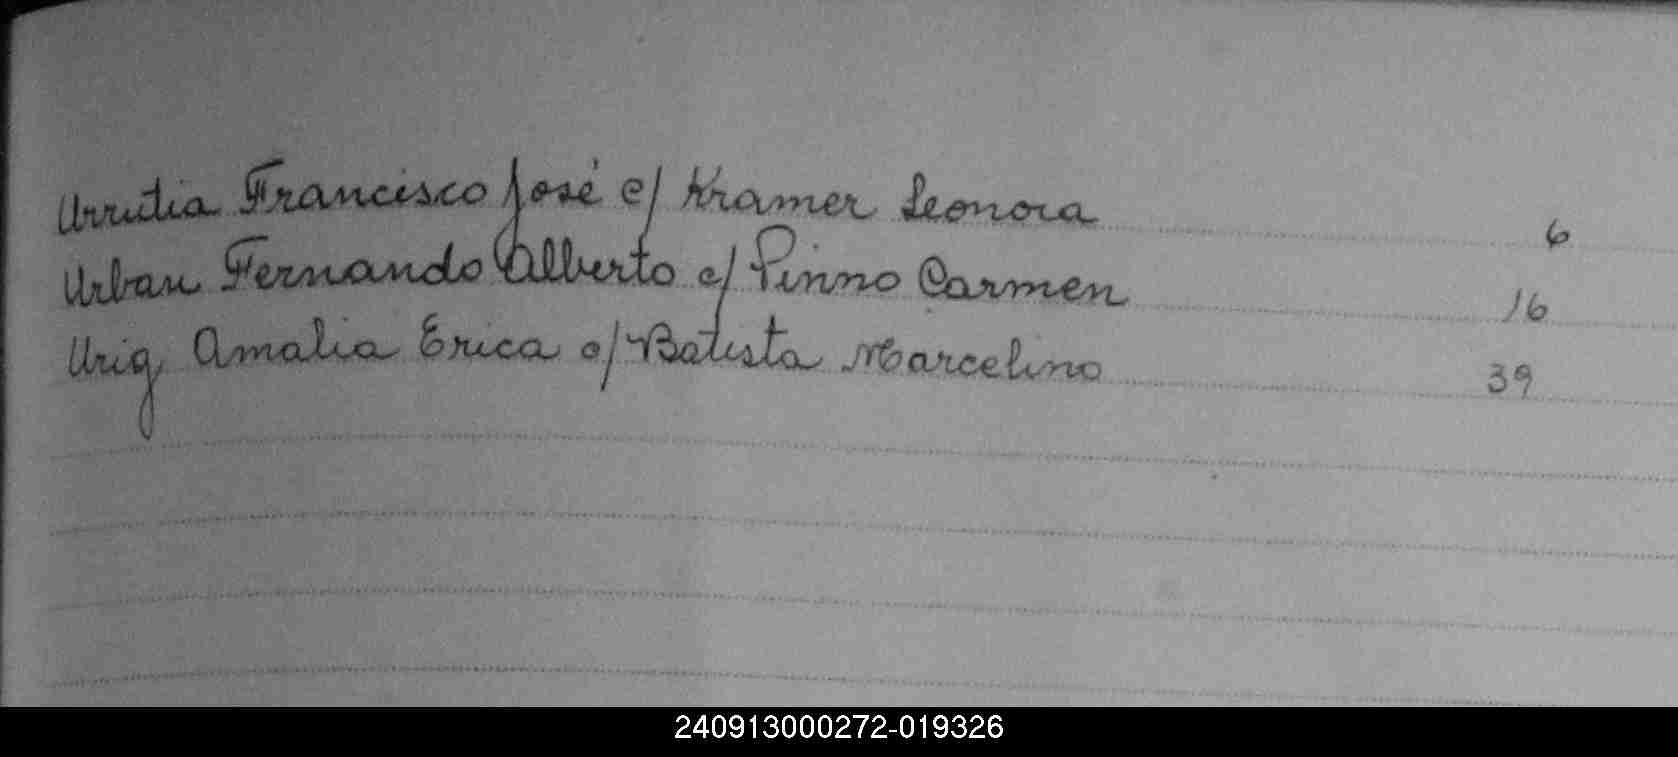 Urrutia Francisco José c/ Kramer Leonora 6
Urban Fernando Alberto c/ Pinno Carmen 16
Urig Amalia Erica c/ Batista Marcelino 39
240913000272-019326